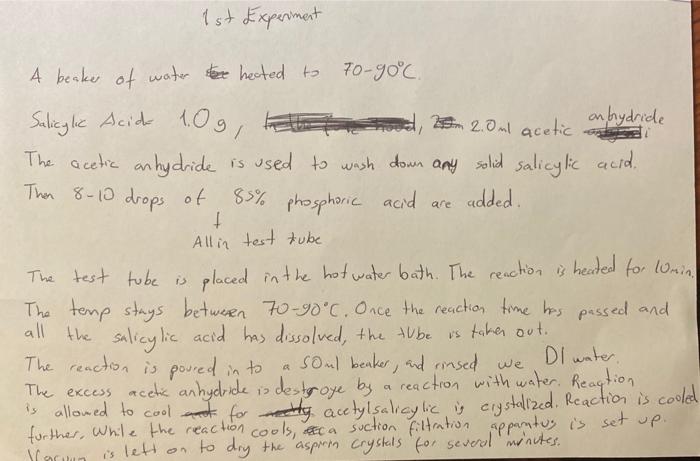 1st Experiment
A beaker of water heated to 70-90°C.
Salicylic Acid 1.0g, , 2.0ml acetic anhydride
The acetic anhydride is used to wash down any solid salicylic acid.
Then 8-10 drops of 85% phosphoric acid are added.
All in test tube
The test tube is placed in the hot water bath. The reaction is heated for 10min.
The temp stays between 70-90°C. Once the reaction time has passed and
all the salicylic acid has dissolved, the tube is taken out.
The reaction is poured in to a 50ml beaker, and rinsed we DI water.
The excess acetic anhydride is destroye by a reaction with water. Reaction
is allowed to cool for acetylsalicylic is crystalized. Reaction is cooled
further. While the reaction cools, a suction filtration apparatus is set up.
Vacuum is left on to dry the aspirin crystals for several minutes.